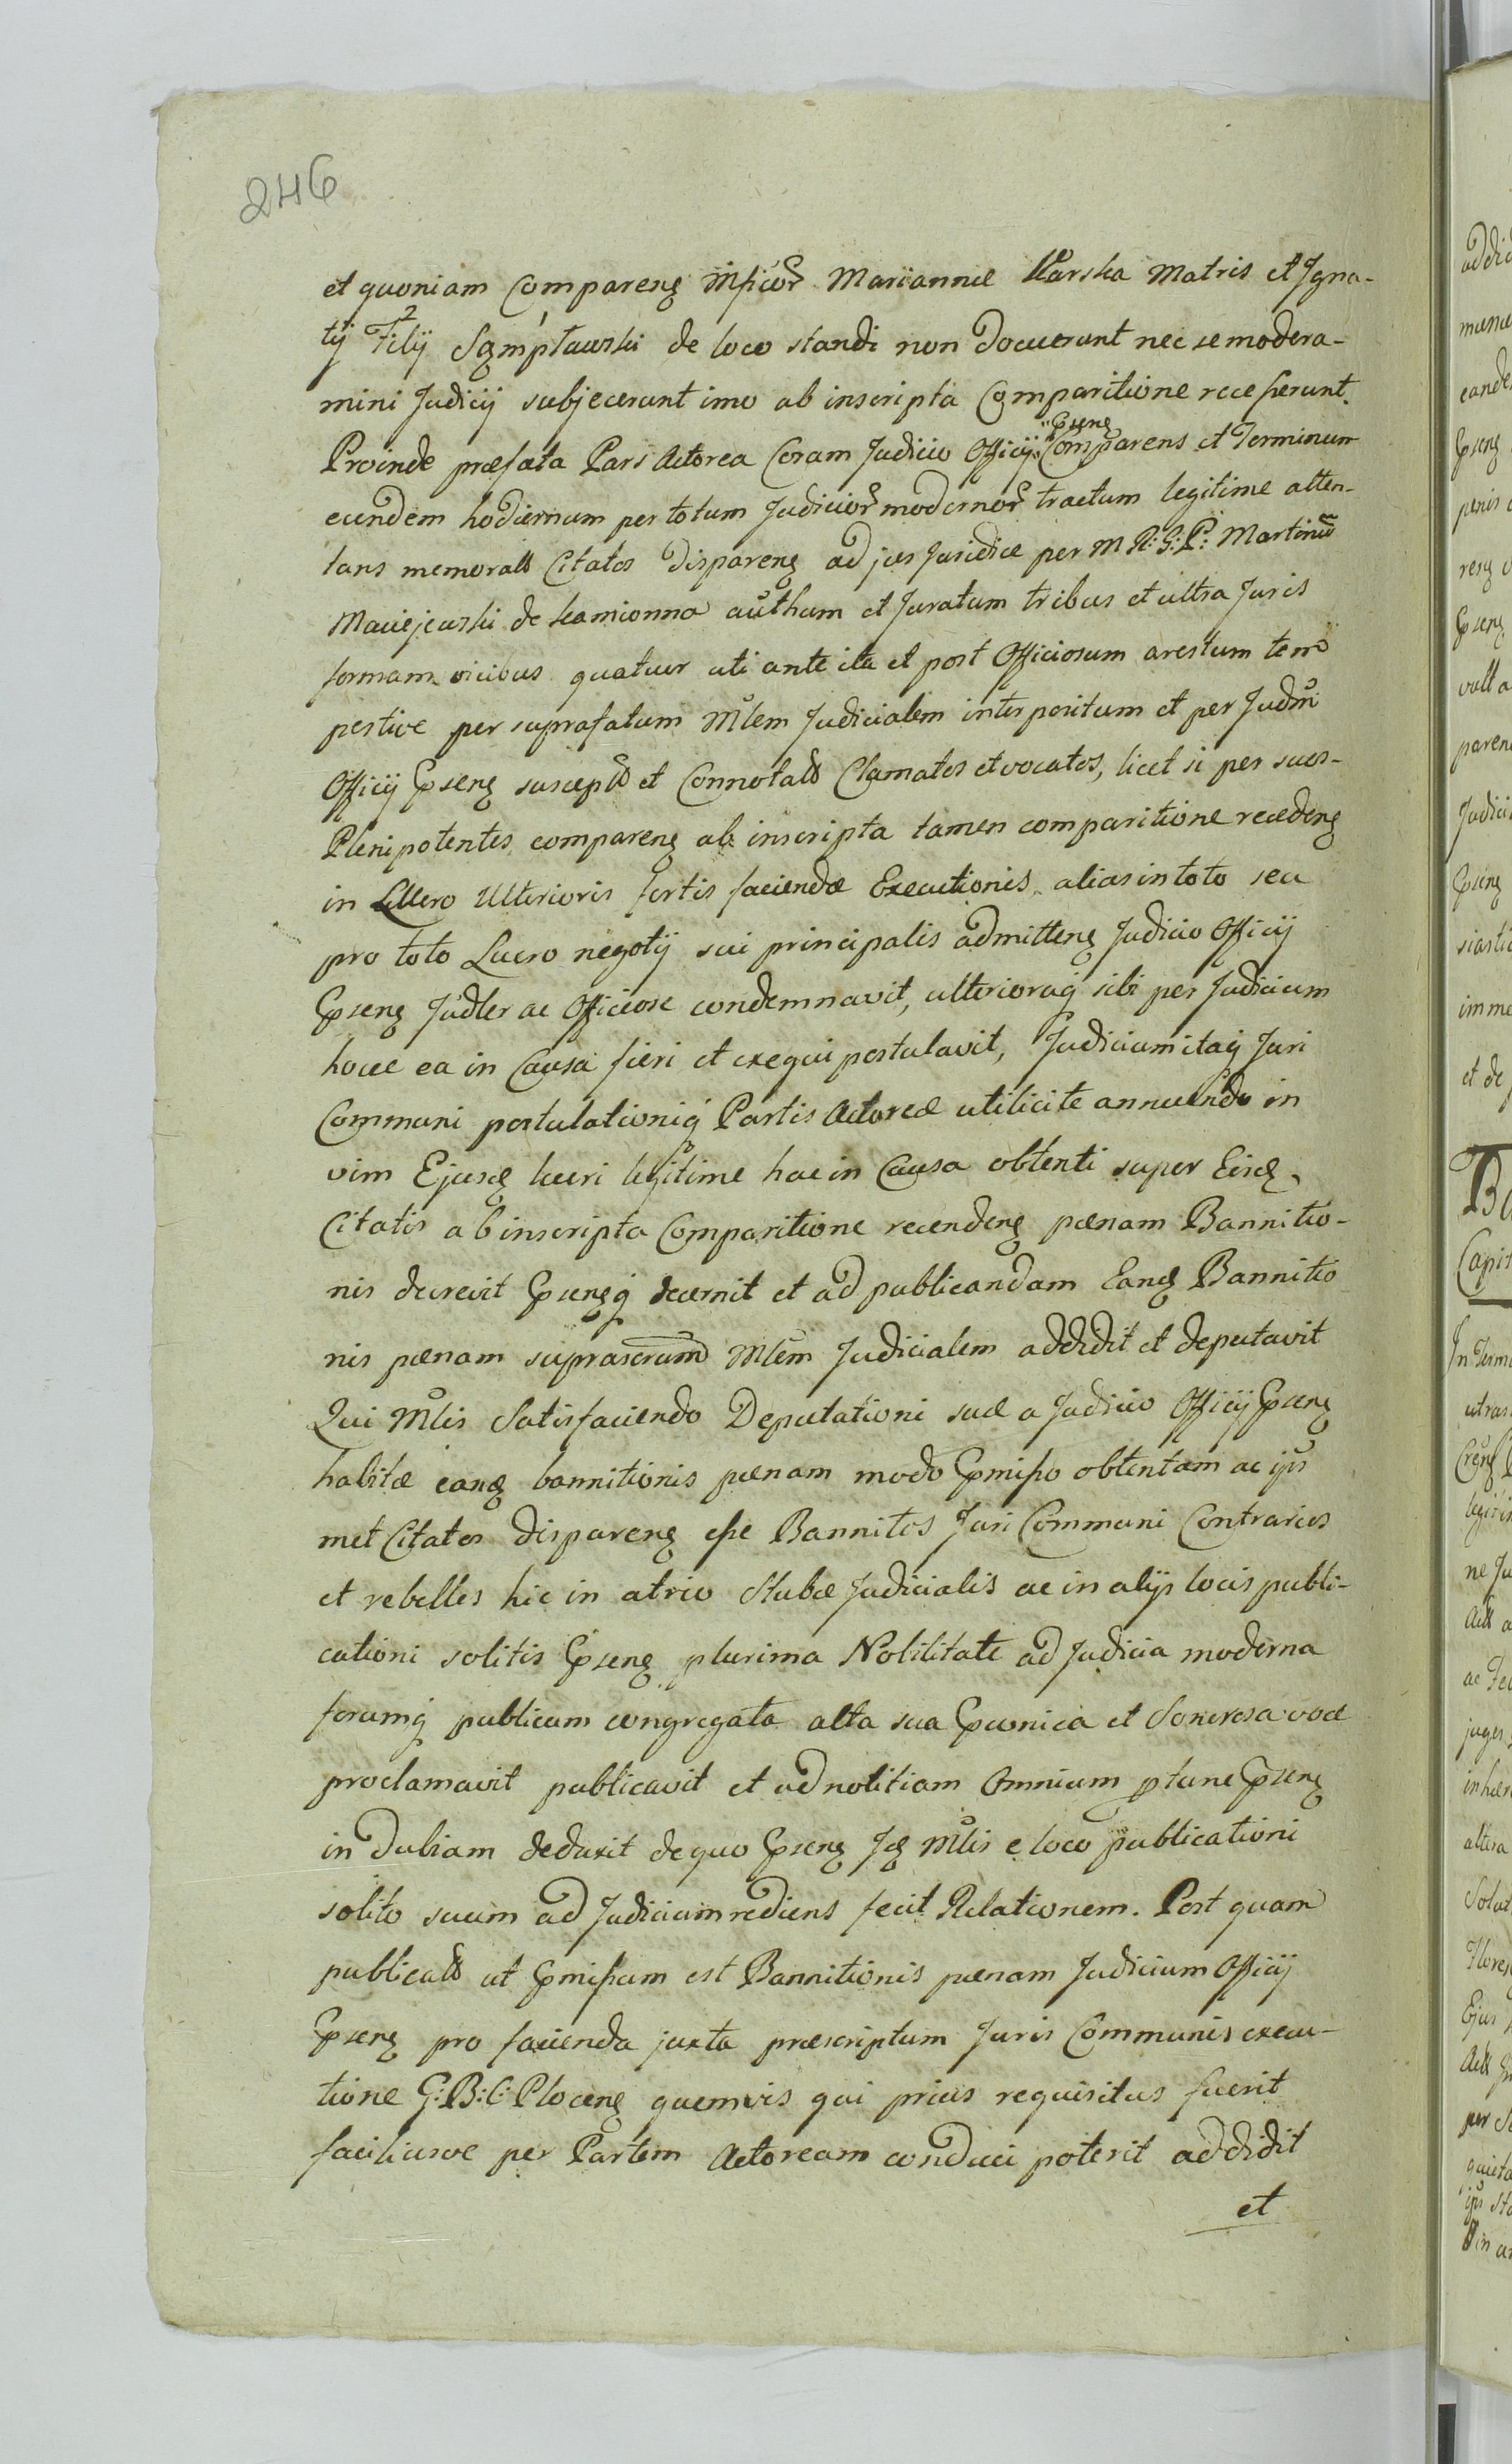 246
et quoniam Compareng Mficor Mariannæ Karska Matris et Igna-
tij Filij Sgmptawski de loco standi non docuerunt nec se modera-
mini Judicij subjecerunt imo ab inscripta Comparitione recesserunt.
Proinde præfata Pars Actorea Coram Judicio Officij Pseng Comparens et Terminum
eundem hodiernum per totum Judicior modernor tractum legitime atten-
tans memoratt Citatos Dispareng ad jus Juridice per M R: G: P: Martinu
Maciejewski de Kamionna authum et Juratum tribus et ultra Juris
formam vicibus quatuor uti ante ita et post Officiosum arestum tem
pestive per suprafatum Mlem Judicialem interpositum et per Judm
Officij Pseng suscept et Connotatt Clamatos et vocatos, licet si per suos-
Plenipotentes compareng ab inscripta tamen comparitione recedeng
in Lucro Ulterioris fortis faciendæ Executionis alias in toto seu
pro toto Lucro negotij sui principalis admitteng Judicio Officij
Pseng Judler ac Officiose condemnavit, ulterioraq sibi per Judicium
hocce ea in Causa fieri et exequi postulavit, Judicium itaq Juri
Communi postulationiq Partis Actoreæ utilicite annuendo in
vim Ejusd lucri legitime hac in Causa obtenti super Eisd
Citatis ab inscripta Comparitione recendeng pænam Bannitio-
nis decrevit Psengq decernit et ad publicandam Eand Bannitio
nis pænam suprascrum Mlem Judicialem addidit et deputavit
Qui Mlis Satisfaciendo Deputationi suæ a Judicio Officij Pseng
habitæ eand bannitionis pænam modo Pmisso obtentam ac ips
met Citatos Dispareng esse Bannitos Juri Communi Contrarios
et rebelles hic in atrio Stubæ Judicialis ac in alijs locis publi-
cationi solitis Pseng plurima Nobilitate ad Judicia moderna
forumq publicum congregata alta sua Pconica et Sonorosa voce
proclamavit publicavit et ad notitiam Omnium ptunc Pseng
indubiam deduxit de quo Pseng Id Mlis e loco publicationi
solito suum ad Judicium rediens fecit Relationem. Post quam
publicatt ut Pmissum est Bannitionis pænam Judicium Officij
Pseng pro facienda juxta præscriptum Juris Communis execu-
tione G: B: C: Ploceng quemvis qui prius requisitus fuerit
faciliusve per Partem Actoream conduci poterit addidit
et